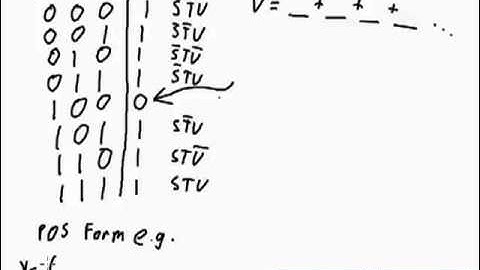 0 0 0 | 1 S̅T̅U̅ V = _ + _ + _ + _ ...
0 0 1 | 1 S̅T̅U
0 1 0 | 1 S̅TU̅
0 1 1 | 1 S̅TU
1 0 0 | 0
1 0 1 | 1 ST̅U
1 1 0 | 1 STU̅
1 1 1 | 1 STU
POS Form e.g.